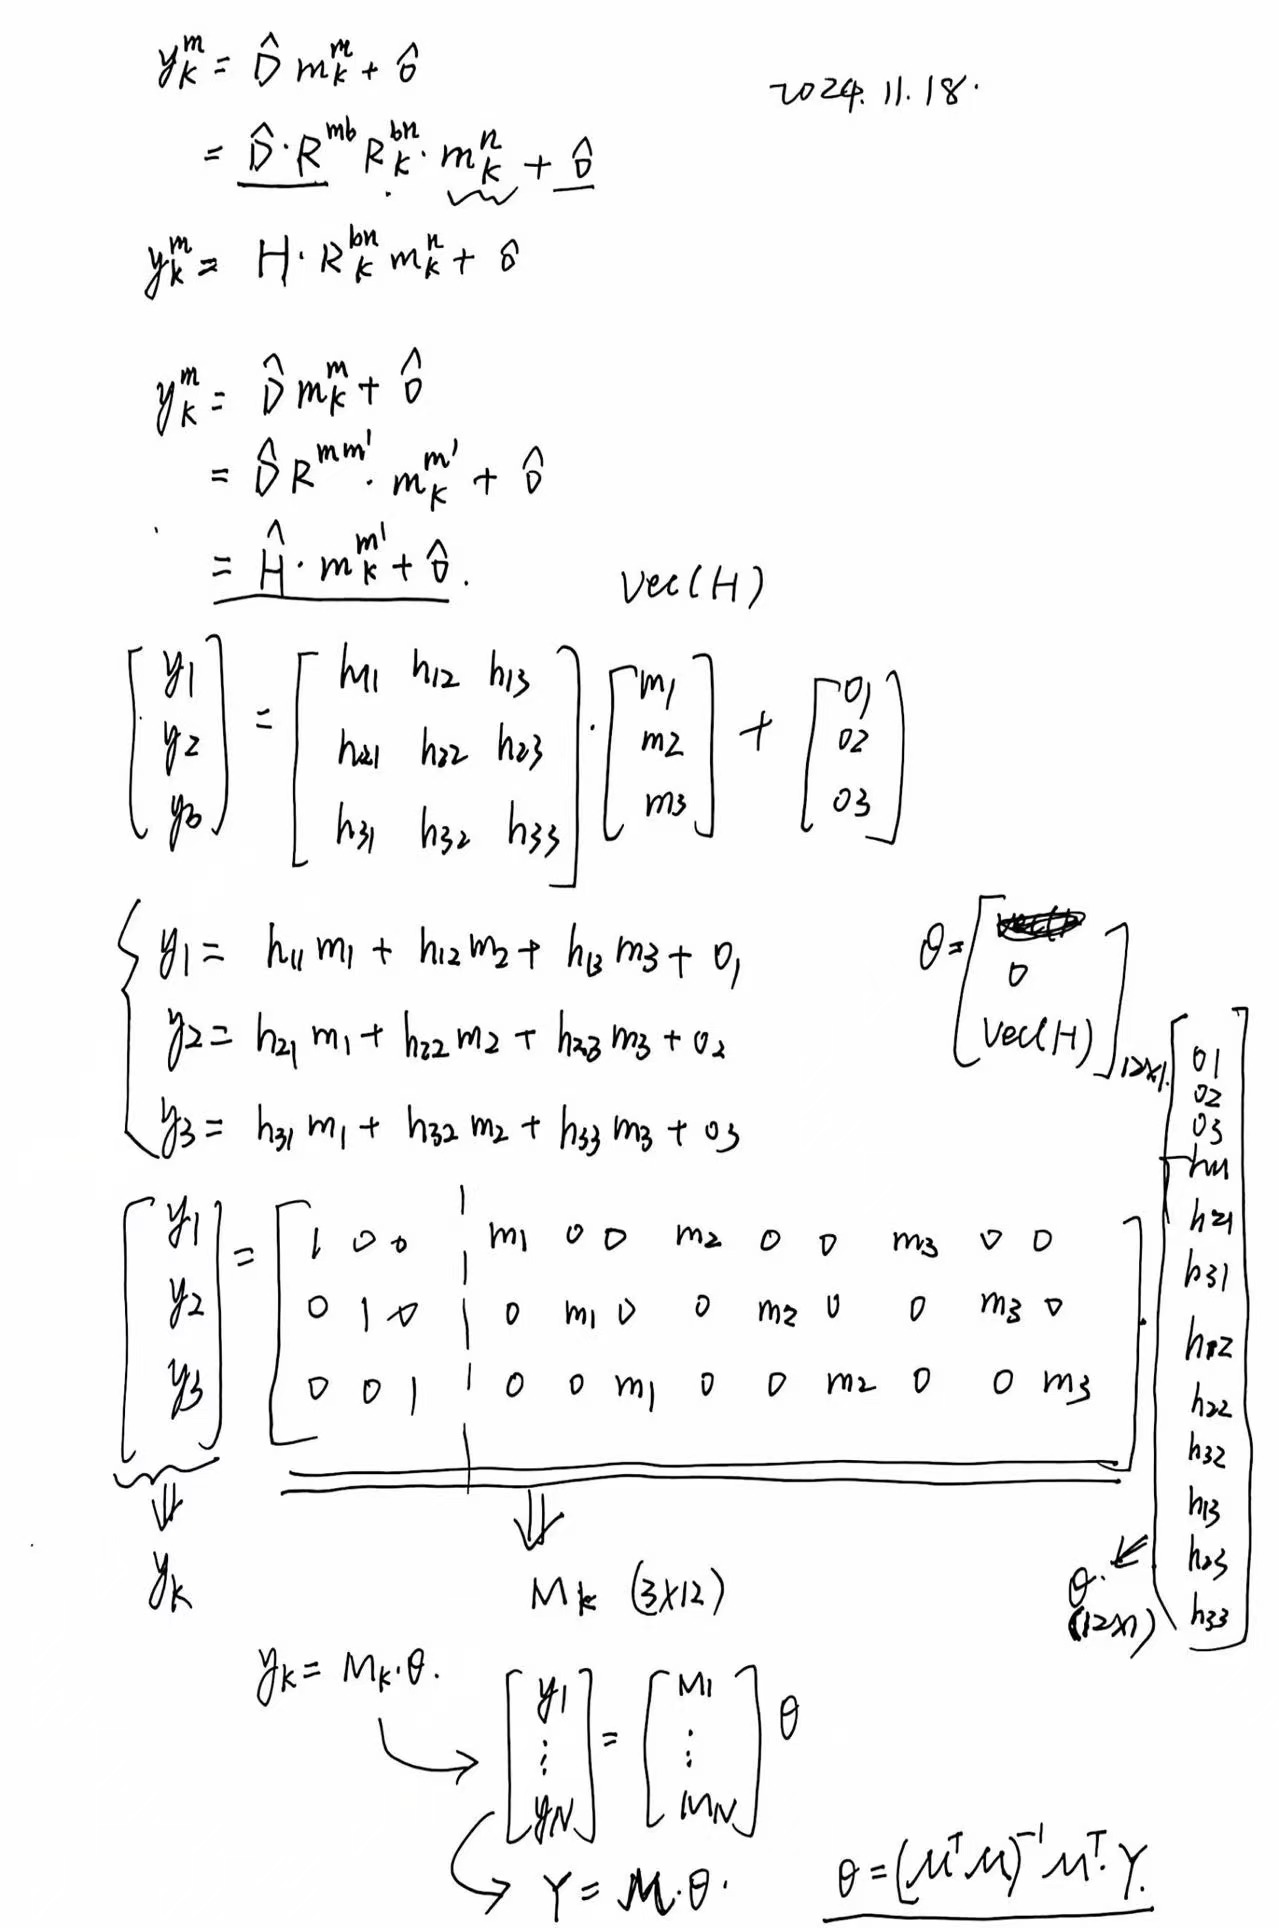 2024.11.18.
y_k^m = D̂ m_k^m + ô
= D̂·R^{mb} R_k^{bn}·m_k^n + ô
y_k^m = H·R_k^{bn} m_k^n + ô
y_k^m = D̂ m_k^m + ô
= D̂ R^{mm'}·m_k^{m'} + ô
= Ĥ·m_k^{m'} + ô.
Vec(H)
[y1 y2 y3] = [h11 h12 h13
h21 h22 h23
h31 h32 h33]·[m1 m2 m3] + [o1 o2 o3]
{ y1 = h11 m1 + h12 m2 + h13 m3 + o1
y2 = h21 m1 + h22 m2 + h23 m3 + o2
y3 = h31 m1 + h32 m2 + h33 m3 + o3
θ = [o
Vec(H)]12×1.
[y1 y2 y3] = [1 0 0 | m1 0 0 m2 0 0 m3 0 0
0 1 0 | 0 m1 0 0 m2 0 0 m3 0
0 0 1 | 0 0 m1 0 0 m2 0 0 m3]·
[o1
o2
o3
h11
h21
h31
h12
h22
h32
h13
h23
h33]
⇓ y_k
⇓ M_k (3×12)
θ. (12×1)
y_k = M_k·θ.
[y1 ⋮ yN] = [M1 ⋮ MN] θ
Y = M·θ.
θ = (M^T M)^{-1} M^T·Y.